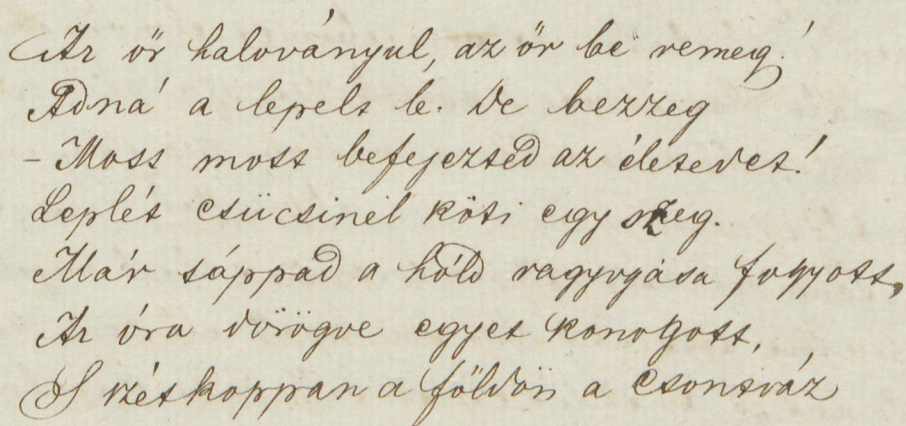 Az őr haloványul, az őr be remeg!
Adná a lepelt le. De bezzeg
- Most most befejezted az életedet!
Leplét csücsinél köti egy szeg.
Már sáppad a hóld ragyogása fogyott,
Az óra dörögve egyet kongott,
S szétkoppan a földön a csontváz